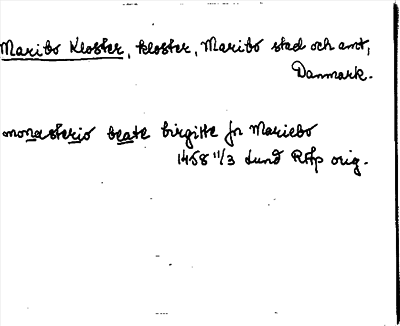 Maribo Kloster, kloster, Maribo stad och amt,
Danmark.
monasterio beate birgitte jn Mariebo
1458 11/3 Lund RAp orig.